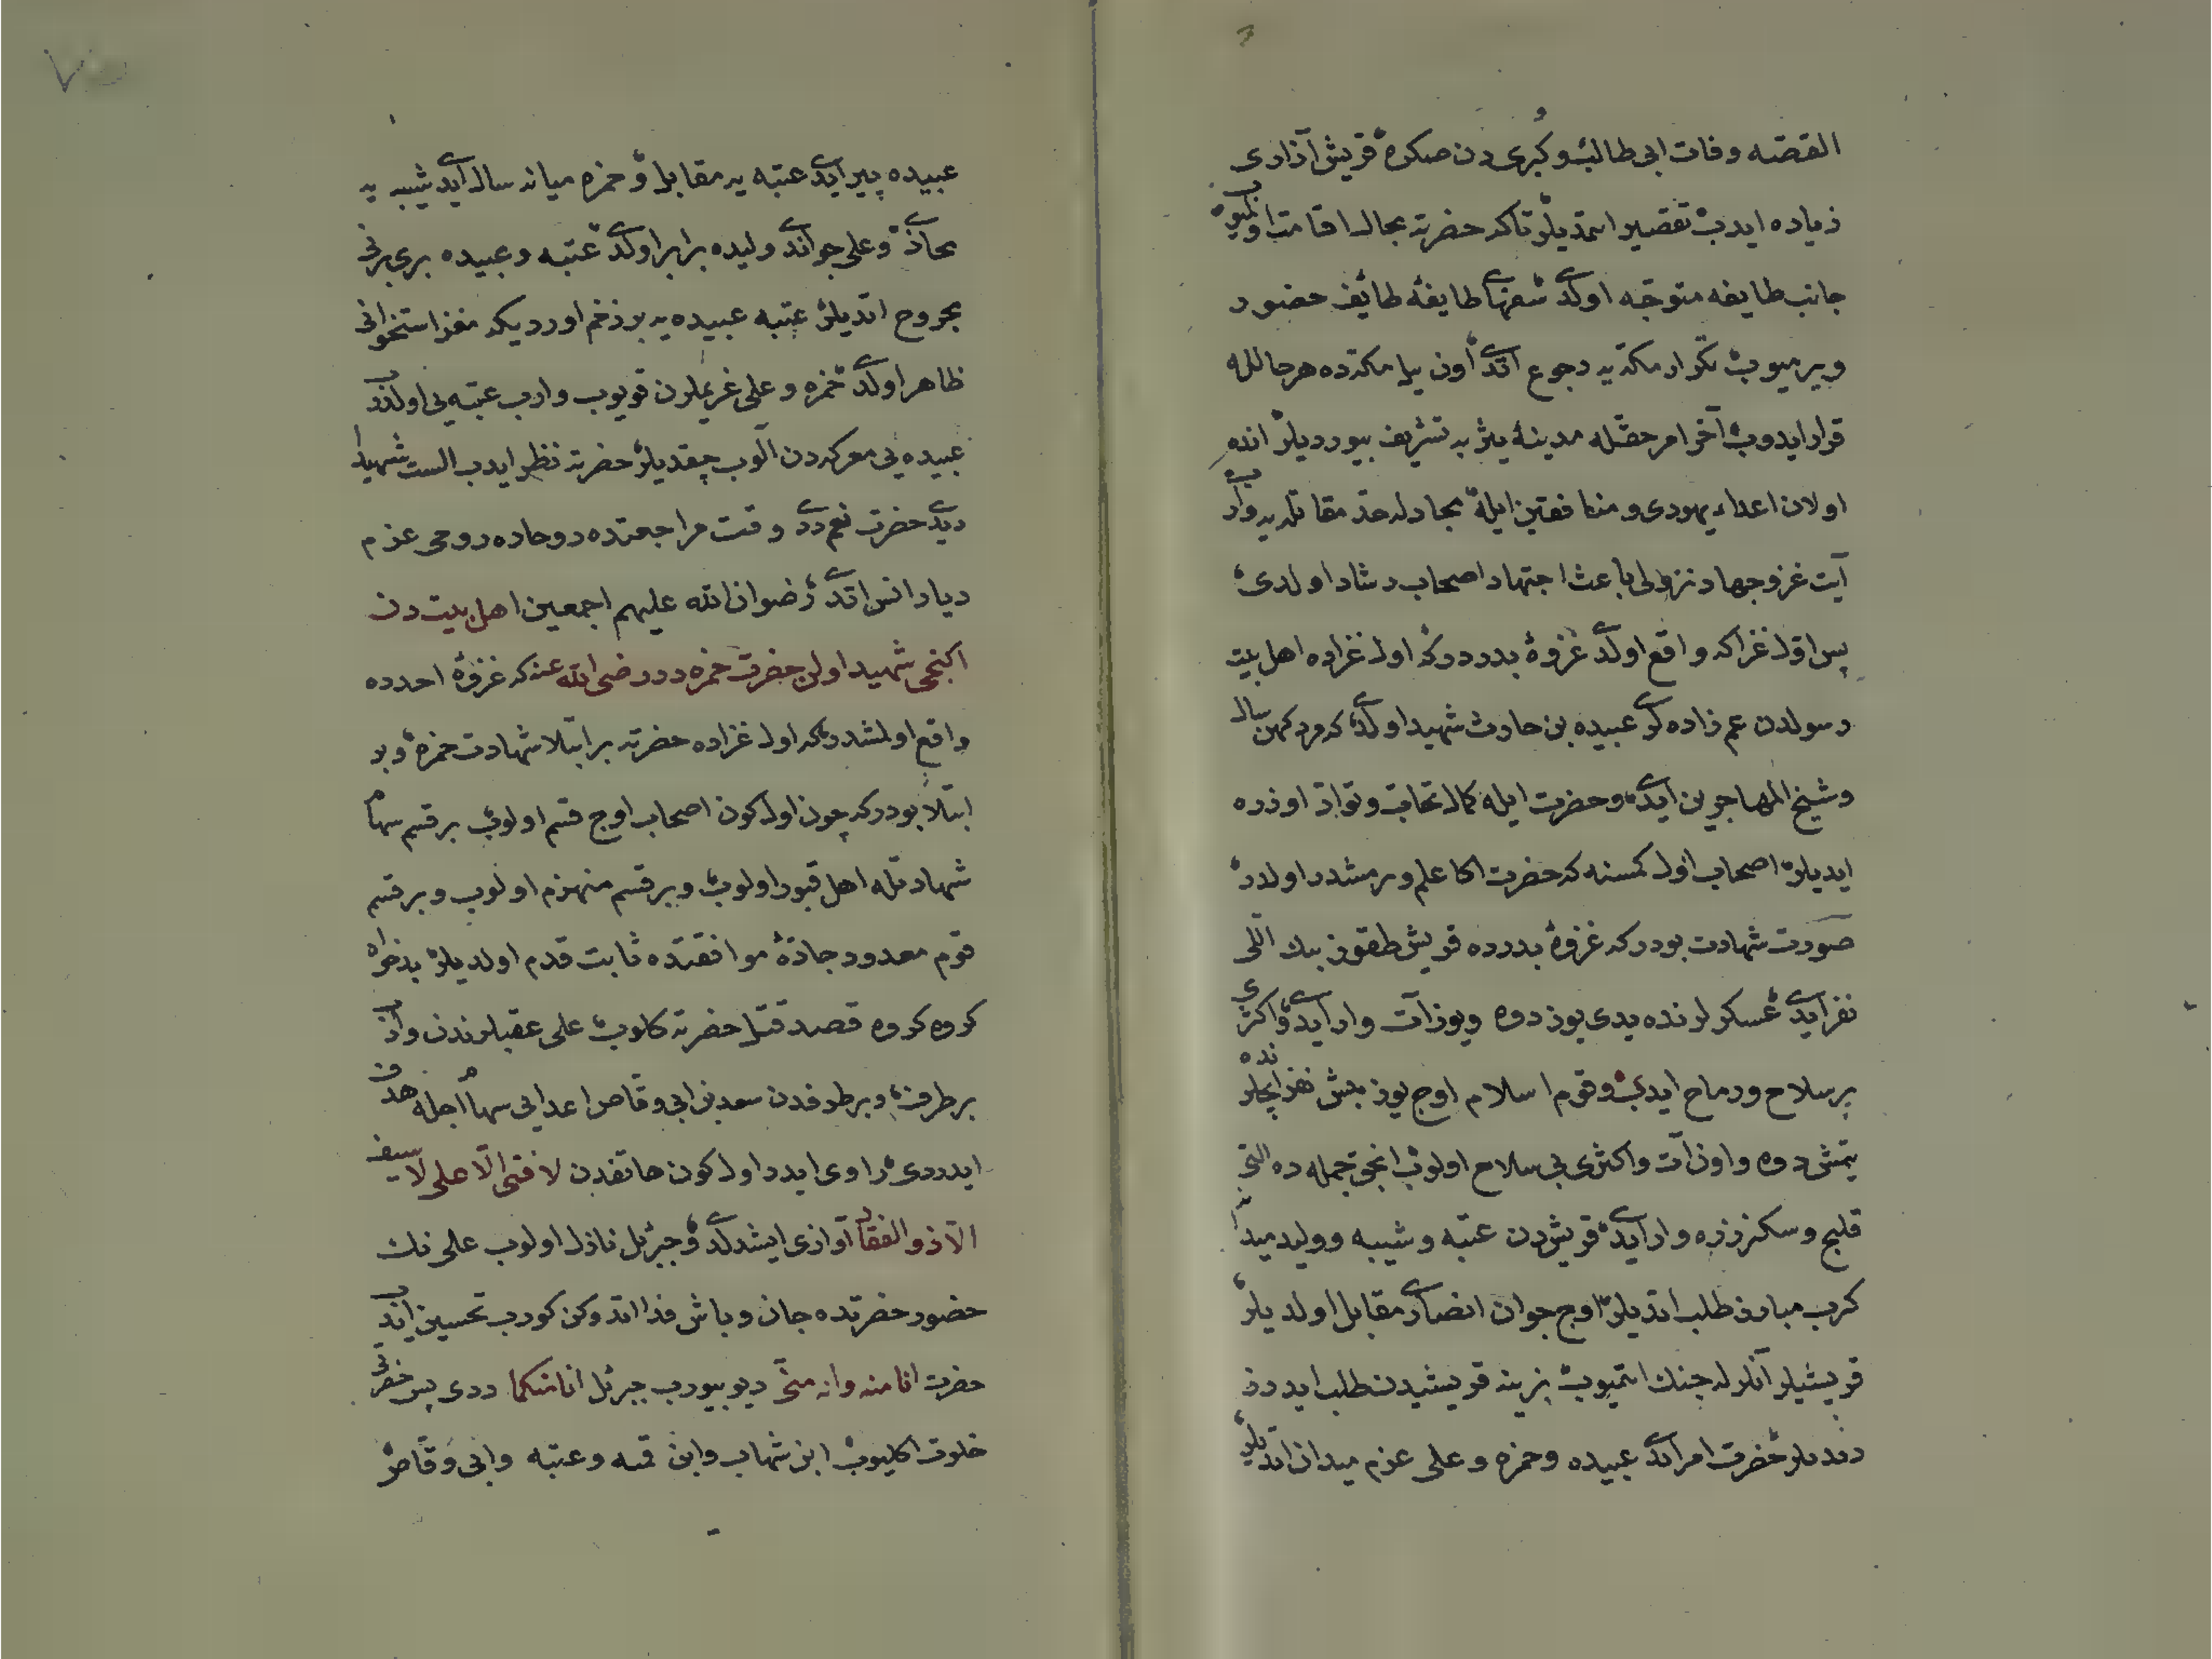 القصّه وفات ابی طالب و کبری دن صکره قریش آزاری
زیاده ایدب تقصیر اتمدیلر تاکه حضرته مجال اقامت اولمیوب
جانب طایفه متوجّه اولدی شعرنها طایفهٔ طائف حضور
ویرمیوب تکرار مکّه یه رجوع اتدی اون ییل مکّه ده هر حالله
قرار ایدوب آخر امر حقّله مدینهٔ یثربه تشریف بیوردیلر انده
اولان اعداء یهودی و منافقین ایله مجادله حدّ مقاتله یه واروب
آیت غزو جهاد نزولی باعث اجتهاد اصحاب رشاد اولدی
پس اوّل غزا که واقع اولدی غزوهٔ بدردر که اول غزاده اهل بیت
رسولدن عم زاده لری عبیده بن حارث شهید اولدی که مرد کهن سال
و شیخ المهاجرین ایدی و حضرت ایله کمال تحابّ و توادّ اوزره
ایدیلر اصحاب اول کمسنه که حضرت اکا علم ویرمشدر اولدر
صورت شهادت بودر که غزوهٔ بدرده قریش طقوز بیك اللی
نفر ایدی عسکرلرنده یدی یوز دوه و یوز آت وار ایدی و اکثری
پر سلاح و رماح ایدی و قوم اسلام اوج یوز بش نفر ایچلرنده
یتمش دوه و اون آت و اکثری بی سلاح اولوب انجق جمله ده التی
قلیج و سکز زره وار ایدی قریش دن عتبه و شیبه و ولید میدانه
کرب مبارز طلب اتدیلر اوج جوان انصاری مقابل اولدیلر
قریشیلر آنلرله جنك اتمیوب بز ینه قریشیدن طلب ایدرز
دیدیلر حضرت امر اتدی عبیده و حمزه و علی عزم میدان اتدیلر
عبیده پیر ایدی عتبه یه مقابل و حمزه میانه سال ایدی شیبه یه
محاذی و علی جواندی ولیده برابر اولدی عتبه و عبیده بری برنی
مجروح اتدیلر عتبه عبیده یه بر زخم اوردیکه مغز استخوانی
ظاهر اولدی حمزه و علی غریملرن قویوب وارب عتبه یی اولدروب
عبیده یی معرکه دن آلوب چقدیلر حضرته نظر ایدب الست شهیدا
دیدی حضرت نعم ددی وقت مراجعتده روحاده روحی عزم
دیار انس اتدی رضوان الله علیهم اجمعین اهل بیت دن
اکنجی شهید اولن حضرت حمزه در رضی الله عنه که غزوهٔ احدده
واقع اولمشدر که اول غزاده حضرته بر ابتلا شهادت حمزه و بر
ابتلا بودر که چون اول کون اصحاب اوج قسم اولوب بر قسم سهام
شهادتله اهل قبور اولوب و بر قسم منهزم اولوب و بر قسم
قوم معدود جادّهٔ موافقتده ثابت قدم اولدیلر بدخواه
کروه کروه قصد قتل حضرته کلوب علی عقبلرندن واروب
بر طرفه و بر طرفدن سعد بن ابی وقّاص اعدایی سهام اجله هدف
ایدردی راوی ایدر اول کون هاتفدن لا فتی الّا علی لا سیف
الّا ذو الفقار آوازی ایشدلدی و جبرئل نازل اولوب علی نك
حضور حضرتده جان و باش فدا اتدوکن کورب تحسین ایدب
حضرت انا منه وانه منّی دیو بیورب جبرئل انا منکما ددی پس حضرتی
خلوت اکلیوب ابن شهاب وابن قمه و عتبه وابی وقّاص